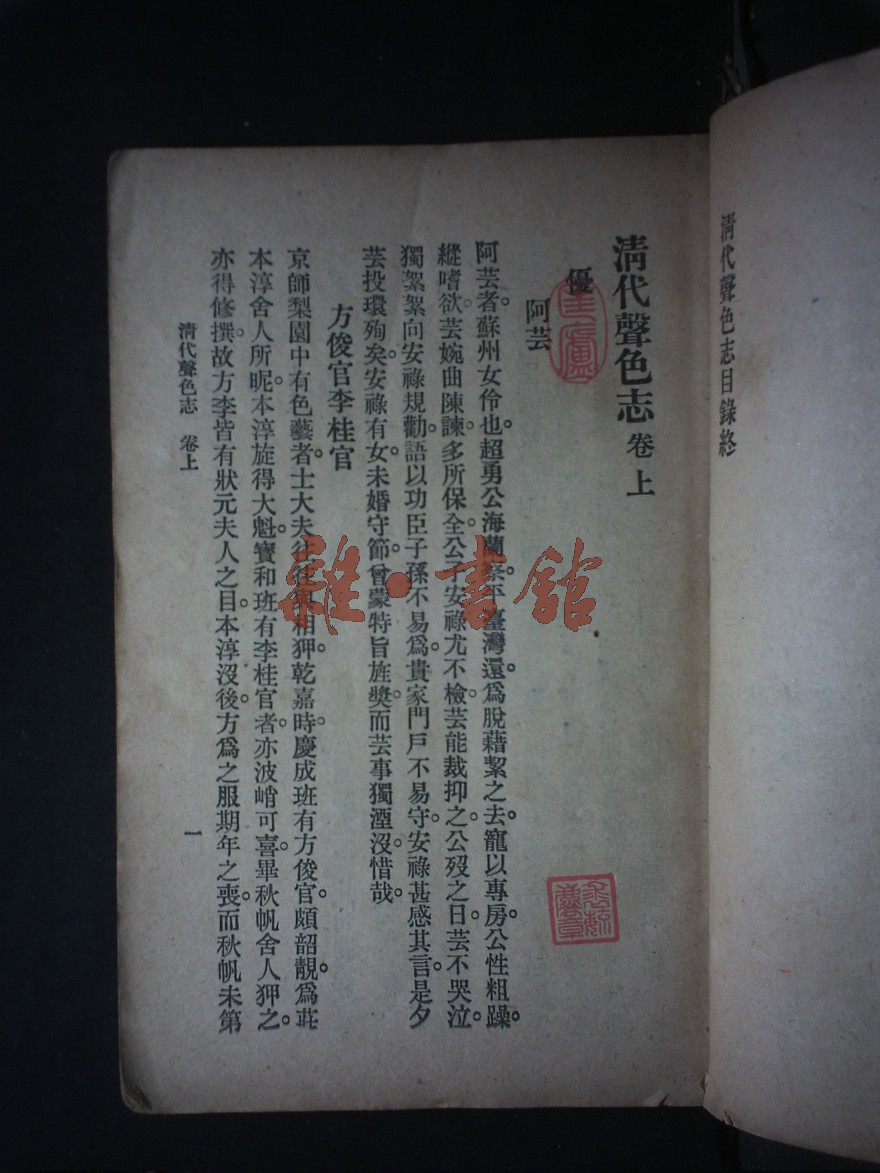 清代聲色志目錄終
清代聲色志 卷上
優
阿芸
阿芸者。蘇州女伶也。超勇公海蘭察平臺灣還。爲脫藉絜之去。寵以專房。公性粗躁。
縱嗜欲。芸婉曲陳諫。多所保全。公子安祿尤不檢。芸能裁抑之。公歿之日。芸不哭泣。
獨絮絮向安祿規勸。語以功臣子孫不易爲。貴家門戶不易守。安祿甚感其言。是夕
芸投環殉矣。安祿有女。未婚守節。曾蒙特旨旌奬。而芸事獨湮沒。惜哉。
方俊官李桂官
京師梨園中有色藝者。士大夫往往與相狎。乾嘉時。慶成班有方俊官。頗韶靚。爲莊
本淳舍人所昵。本淳旋得大魁。寶和班有李桂官者。亦波峭可喜。畢秋帆舍人狎之。
亦得修撰。故方李皆有狀元夫人之目。本淳沒後。方爲之服期年之喪。而秋帆未第
清代聲色志 卷上
一
雜·書館